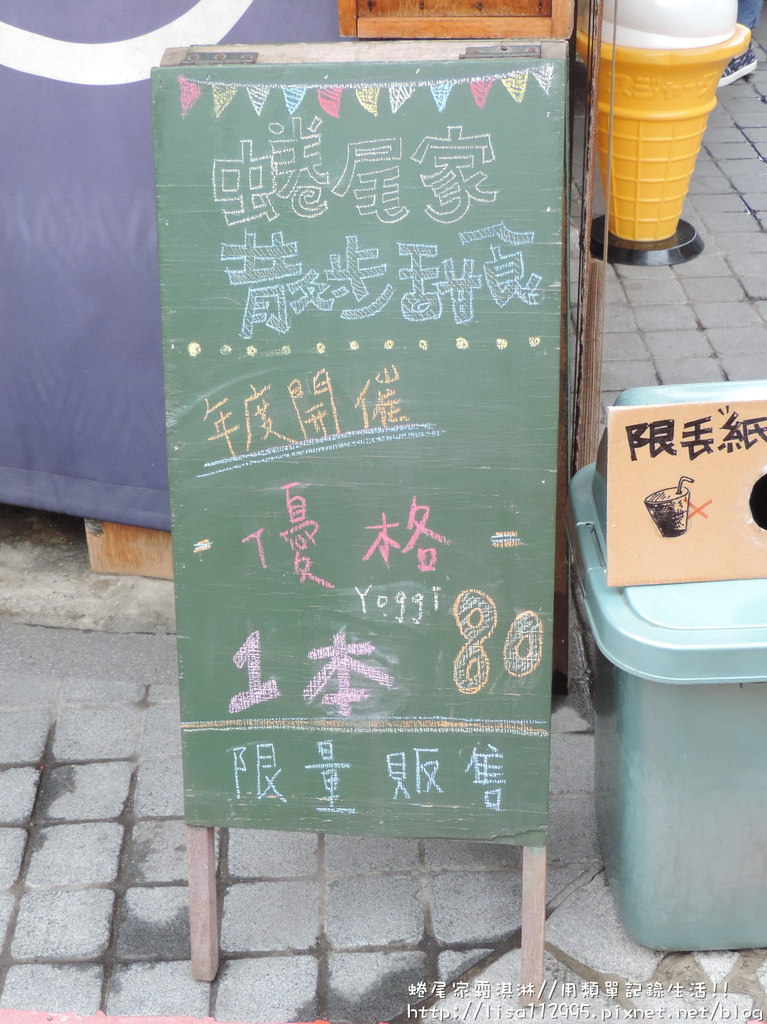 蜷尾家
散步甜食
年度開催
優格
Yoggi
1本 80
限量販售
限丟紙
蜷尾家霜淇淋//用類單記錄生活!!
http://lisa112995.pixnet.net/blog